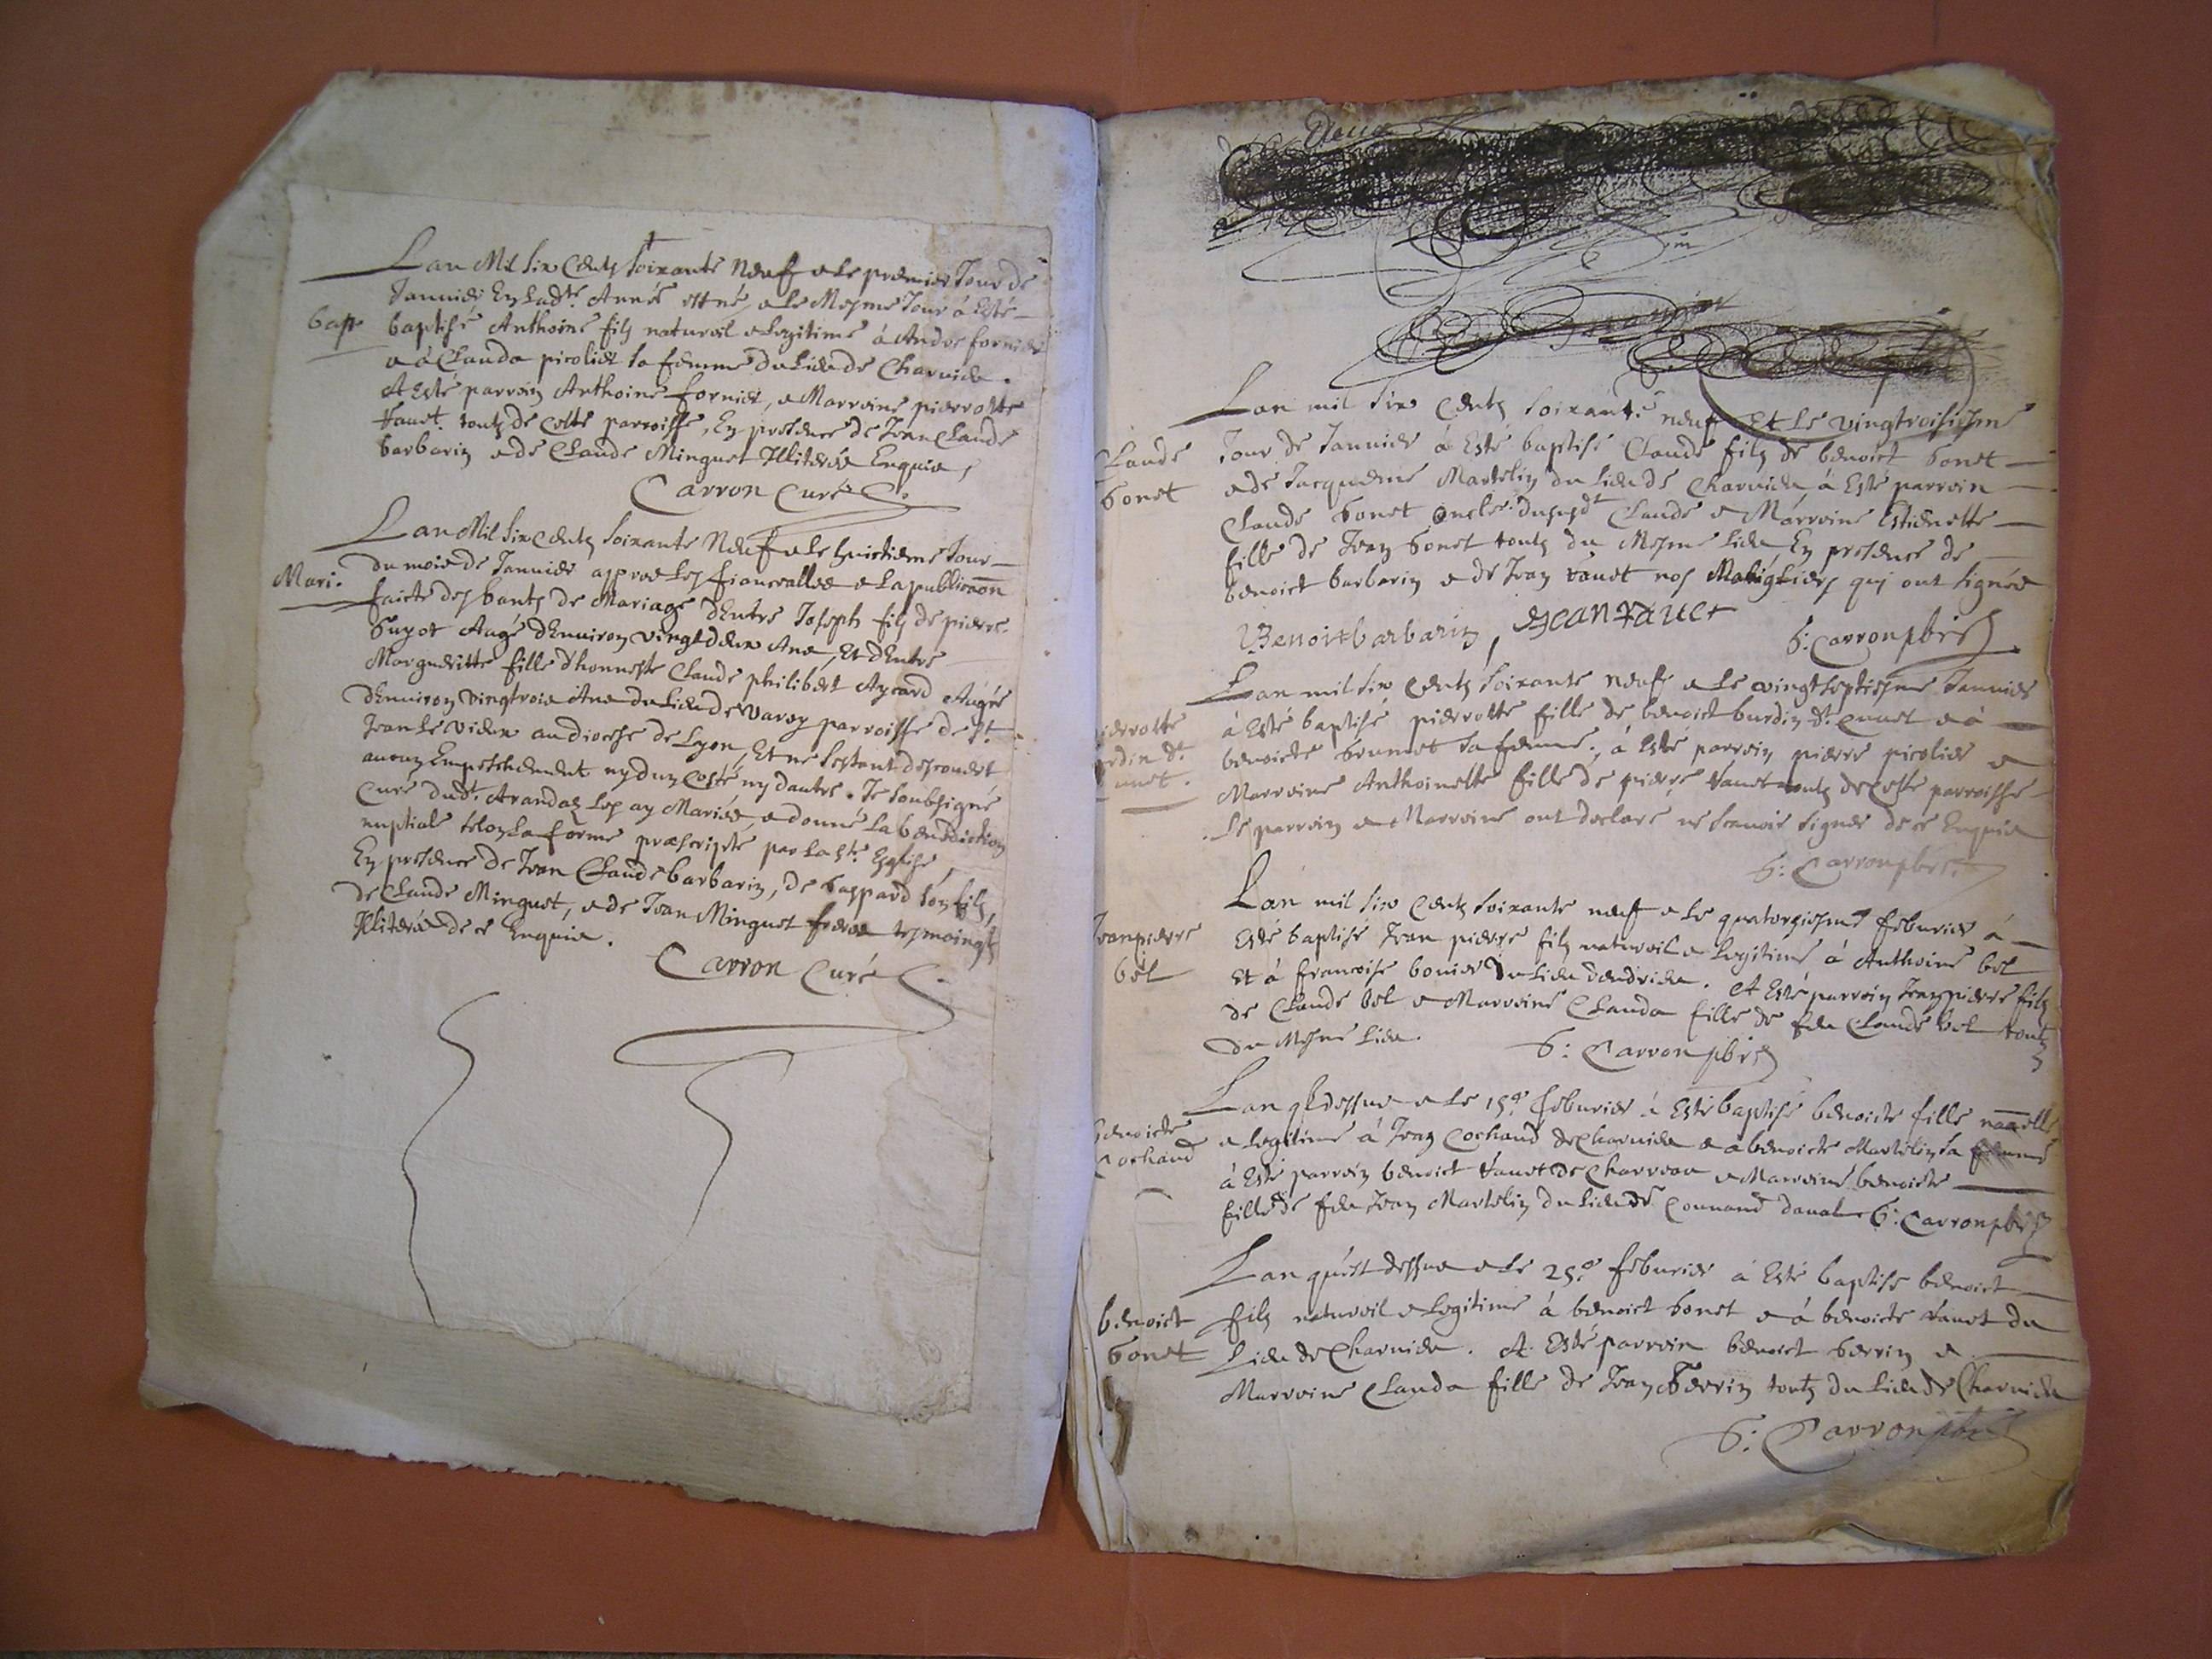 Lan Mil Six Centz Soixante Neuf e le premier Jour de
Januier En Ladte. Année est né, e le Mesme Jour à Esté
bap baptisé Anthoine filz naturel e legitime à Andre fornier
e à Clauda picolier sa femme du Lieu de Charuieu.
A Esté parrein Anthoine fornier, e Marreine pierrotte
tauet. toutz de Ceste parroisse, En presence de Jean Claude
barbarin e de Claude Minguet Illiterés Enquis
Carron Curé
Lan Mil Six Centz Soixante Neuf e le huictieme Jour
Mari. du mois de Januier apres les fiansailles e la publicaon
faicte des bantz de Mariage dEntre Joseph filz de pierre
Guyot Aagé dEnuiron vingtdeux Ans, Et dEntre
Margueritte fille dhonneste Claude philibert Aycard Aagée
dEnuiron vingtrois Ans du Lieu de Varey parroisse de St.
Jean le vieux au diocese de Lyon, Et ne sestant descouuert
aucun Empeschement ny dun Costé ny dautre. Je soubsigné
Curé dudt. Arandaz les ay Mariés, e donné la benediction
nuptiale selon la forme præscripte par la Ste. Esglise,
En presence de Jean Claude barbarin, de Gaspard son filz,
de Claude Minguet, e de Jean Minguet freres tesmoingtz
Illiterés de ce Enquis.
Carron Curé
Lan mil six Centz soixante neuf Et le vingtroisiesme
Claude Jour de Januier à Esté baptisé Claude filz de benoict bonet
bonet e de Jacquemine Martelin du Lieu de Charuieu, à Esté parrein
Claude bonet oncle dususdt Claude e Marreine Estiennette
fille de Jean bonet toutz du Mesme Lieu En presence de
benoict barbarin e de Jean tauet nos qui ont signés
Benoit barbarin, Jean tauet
G: Carron pbre
Lan mil six Centz soixante neuf e le vingtseptiesme Januier
ierrotte à Esté baptisé pierrotte fille de benoict burdin dt. Cunet e à
rdin dt. benoicte brunet sa femme, à Esté parrein pierre picolier e
unet. Marreine Anthoinette fille de pierre tauet toutz de Ceste parroisse
Le parrein e Marreine ont declaré ne scauoir signer de ce Enquis
G: Carron pbre.
Lan mil six Centz soixante neuf e le quatorziesme feburier à
Jeanpierre Esté baptisé Jean pierre filz naturel e legitime à Anthoine bel
bel Et à francoise bonier du Lieu dendrieu. A Esté parrein Jeanpierre filz
de Claude bel e Marreine Clauda fille de feu Claude bel toutz
du Mesme Lieu. G: Carron pbre
Lan qdessus e le 15e. feburier à Esté baptisé benoicte fille naelle
benoicte e legitime à Jean Cochand de Charuieu e à benoicte Martelin sa femme
Cochand à Esté parrein benoict tauet de Charueau e Marreine benoicte
fille de feu Jean Martelin du Lieu de Connand daual G: Carron pbre
Lan quest dessus e le 25e. feburier à Esté baptisé benoict
benoict filz naturel e legitime à benoict bonet e à benoicte tauet du
bonet Lieu de Charuieu. A Esté parrein benoict e
Marreine Clauda fille de Jean toutz du Lieu de Charuieu
G: Carron pbre